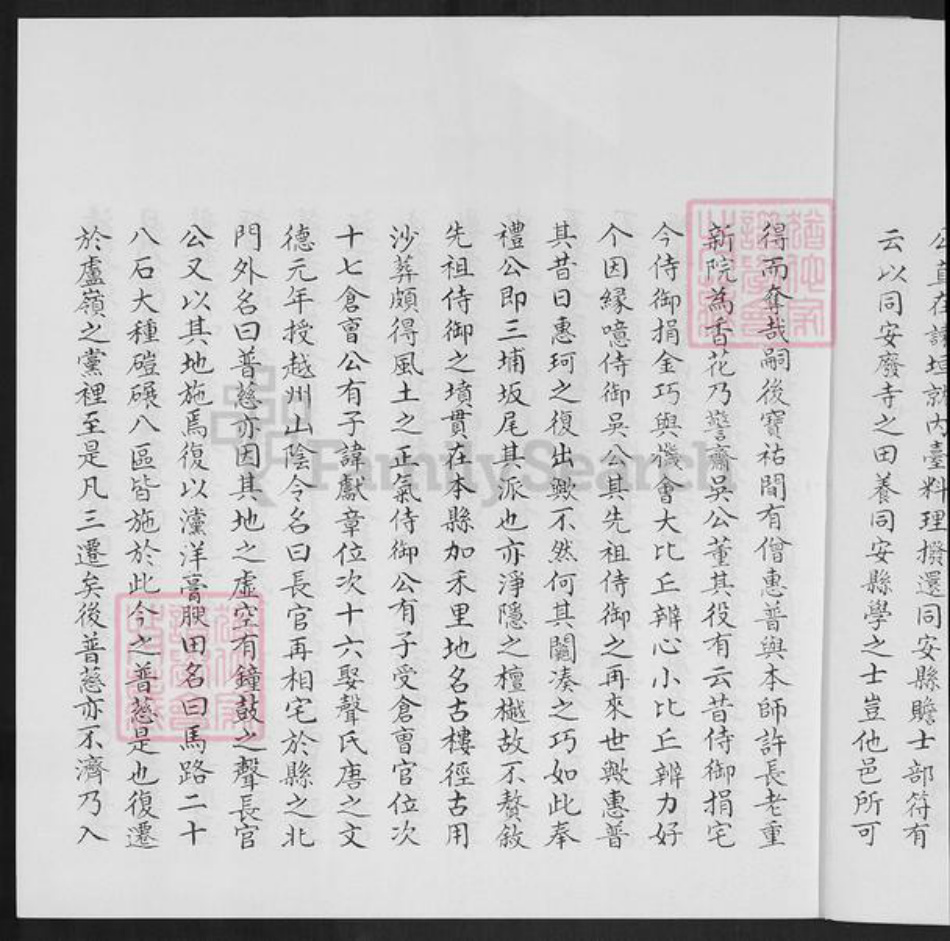 直在該垣就內臺料理撥還同安縣贍士部符有
云以同安廢寺之田養同安縣學之士豈他邑所可
得而奪哉嗣後寶祐間有僧惠普與本師許長老重
新院為香花乃警齋吳公董其役有云昔侍御捐宅
今侍御捐金巧與機會大比丘辨心小比丘辨力好
个因緣噫侍御吳公其先祖侍御之再來世歟惠普
其昔日惠珂之復出歟不然何其鬪湊之巧如此奉
禮公即三埔坂尾其派也亦淨隱之檀樾故不贅敘
先祖侍御之墳貫在本縣加禾里地名古樓徑古用
沙葬頗得風土之正氣侍御公有子受倉曹官位次
十七倉曹公有子諱獻章位次十六娶聲氏唐之文
德元年授越州山陰令名曰長官再相宅於縣之北
門外名曰普慈亦因其地之虛空有鐘鼓之聲長官
公又以其地施焉復以瀼洋膏腴田名曰馬路二十
八石大種磑碾八區皆施於此今之普慈是也復遷
於盧嶺之黨裡至是凡三遷矣後普慈亦不濟乃入
FamilySearch